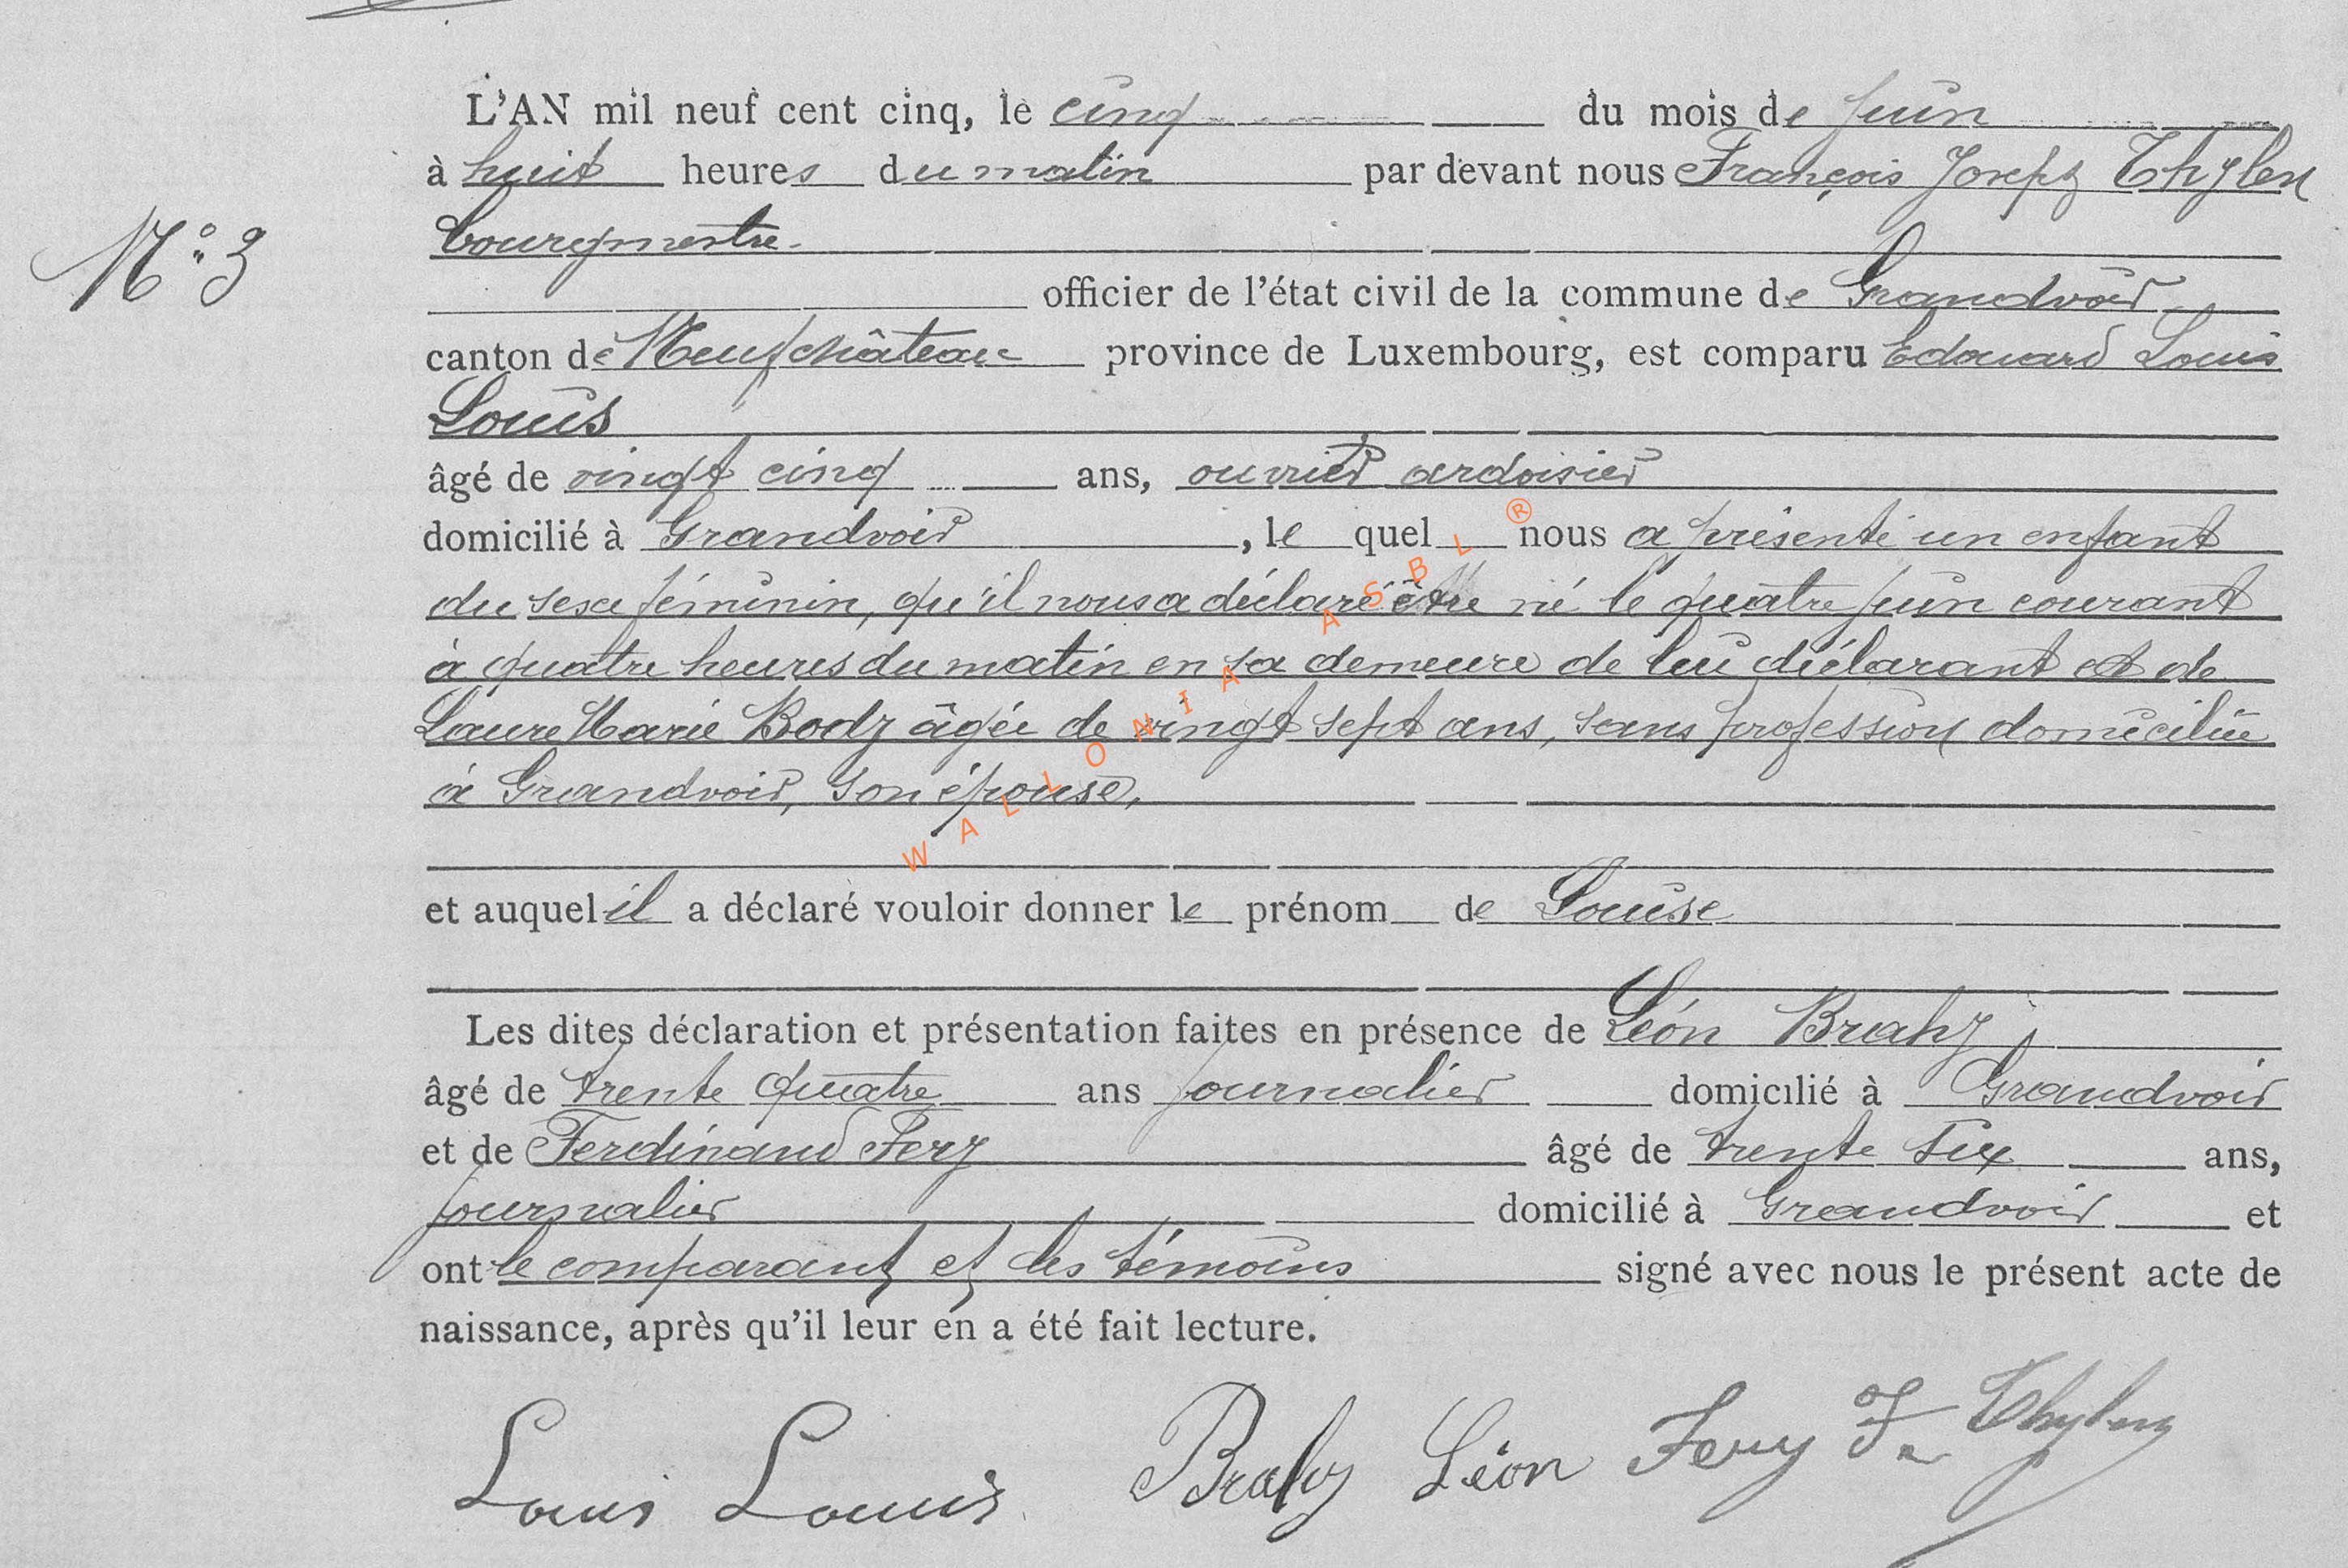 L'AN mil neuf cent cinq, le cinq du mois de juin
à huit heures du matin par devant nous François Joseph Thylen
bourgmestre.
N° 3
officier de l'état civil de la commune de Grandvoir
canton de Neufchâteau province de Luxembourg, est comparu Edouard Louis
Louis
âgé de vingt cinq ans, ouvrier ardoisier
domicilié à Grandvoir, le quel nous a présenté un enfant
du sexe féminin, qu'il nous a déclaré être né le quatre juin courant
à quatre heures du matin en sa demeure de lui déclarant et de
Laure Marie Body âgée de vingt sept ans, sans profession domiciliée
à Grandvoir, son épouse,
et auquel il a déclaré vouloir donner le prénom de Louise
Les dites déclaration et présentation faites en présence de Léon Brahy
âgé de trente quatre ans journalier domicilié à Grandvoir
et de Ferdinand Fery âgé de trente six ans,
journalier domicilié à Grandvoir et
ont le comparant et les témoins signé avec nous le présent acte de
naissance, après qu'il leur en a été fait lecture.
Louis Louis Brahy Léon Fery F. Thylen
WALLONIA ASBL ®